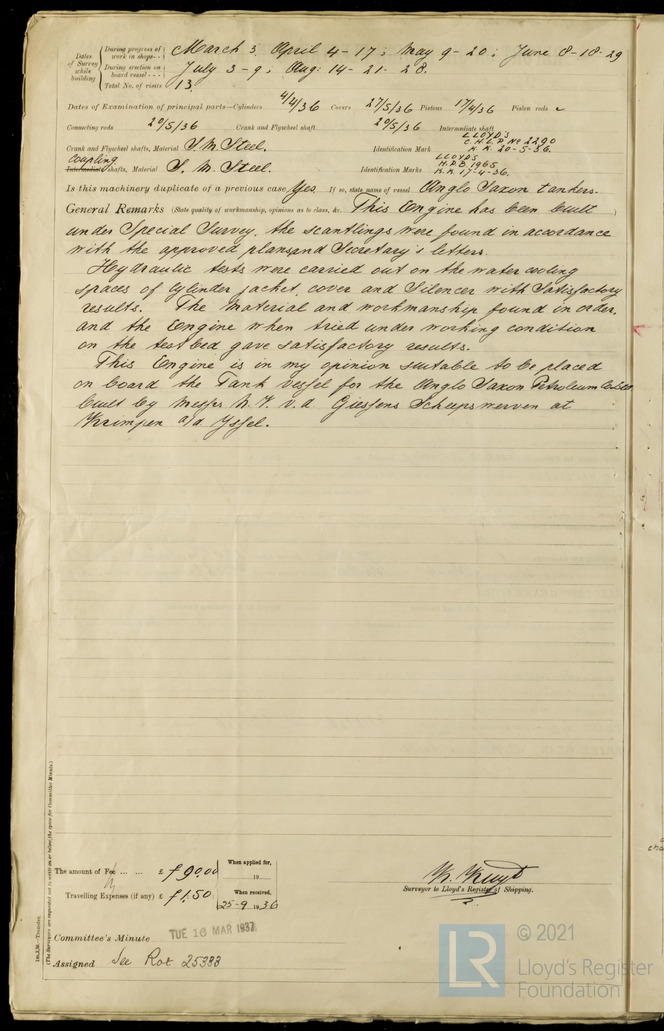 Dates of Survey while building
During progress of work in shops - - March 3, April 4 - 17; May 9 - 20; June 8 - 18 - 29
During erection on board vessel - - - July 3 - 9; Aug: 14 - 21 - 28.
Total No. of visits 13.
Dates of Examination of principal parts—Cylinders 4/4/36 Covers 27/5/36 Pistons 17/4/36 Piston rods ~
Connecting rods 20/5/36 Crank and Flywheel shaft 20/5/36 Intermediate shaft
Crank and Flywheel shafts, Material S.M. Steel. Identification Mark LLOYD'S C.H.L.P. No 2290 K.K. 20-5-36.
coupling Intermediate shafts, Material S. M. Steel. Identification Marks LLOYD'S H.P.B. 1965 K.K. 17-4-36.
Is this machinery duplicate of a previous case Yes If so, state name of vessel Anglo Saxon tankers.
General Remarks (State quality of workmanship, opinions as to class, &c. This Engine has been built
under Special Survey, the scantlings were found in accordance
with the approved plans and Secretary's letters.
Hydraulic tests were carried out on the water cooling
spaces of cylinder jacket, cover and Silencer with Satisfactory
results. The material and workmanship found in order,
and the Engine when tried under working condition
on the testbed gave satisfactory results.
This Engine is in my opinion suitable to be placed
on board the Tank vessel for the Anglo Saxon Petroleum
built by Messrs N.V. v.d. Giessens Scheepswerven at
Krimpen a/d Yssel.
The amount of Fee ... ... £ f 90.00 When applied for, 19
Travelling Expenses (if any) £ f 1.50 When received, 25-9 1936
K. Kuyt
Surveyor to Lloyd's Register of Shipping.
Committee's Minute TUE 16 MAR 1937
Assigned See Rot 25388
(The Surveyors are requested not to write on or below the space for Committee Minute.)
© 2021
LR Lloyd's Register
Foundation